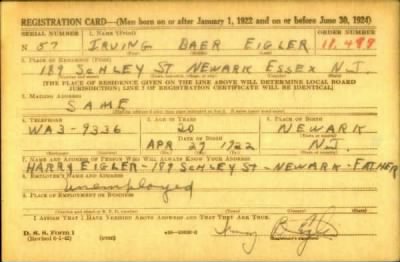 REGISTRATION CARD—(Men born on or after January 1, 1922 and on or before June 30, 1924)
SERIAL NUMBER 1. NAME (Print) ORDER NUMBER
N 57 IRVING BAER EIGLER 11,499
2. PLACE OF RESIDENCE (Print)
189 SCHLEY ST NEWARK ESSEX N.J.
[THE PLACE OF RESIDENCE GIVEN ON THE LINE ABOVE WILL DETERMINE LOCAL BOARD
JURISDICTION; LINE 2 OF REGISTRATION CERTIFICATE WILL BE IDENTICAL]
3. MAILING ADDRESS
SAME
4. TELEPHONE 5. AGE IN YEARS 6. PLACE OF BIRTH
WA3-9336 20 NEWARK
DATE OF BIRTH
APR 27 1922 N.J.
7. NAME AND ADDRESS OF PERSON WHO WILL ALWAYS KNOW YOUR ADDRESS
HARRY EIGLER-189 SCHLEY ST-NEWARK-FATHER
8. EMPLOYER'S NAME AND ADDRESS
unemployed
9. PLACE OF EMPLOYMENT OR BUSINESS
I AFFIRM THAT I HAVE VERIFIED ABOVE ANSWERS AND THAT THEY ARE TRUE.
D. S. S. Form 1
(over)